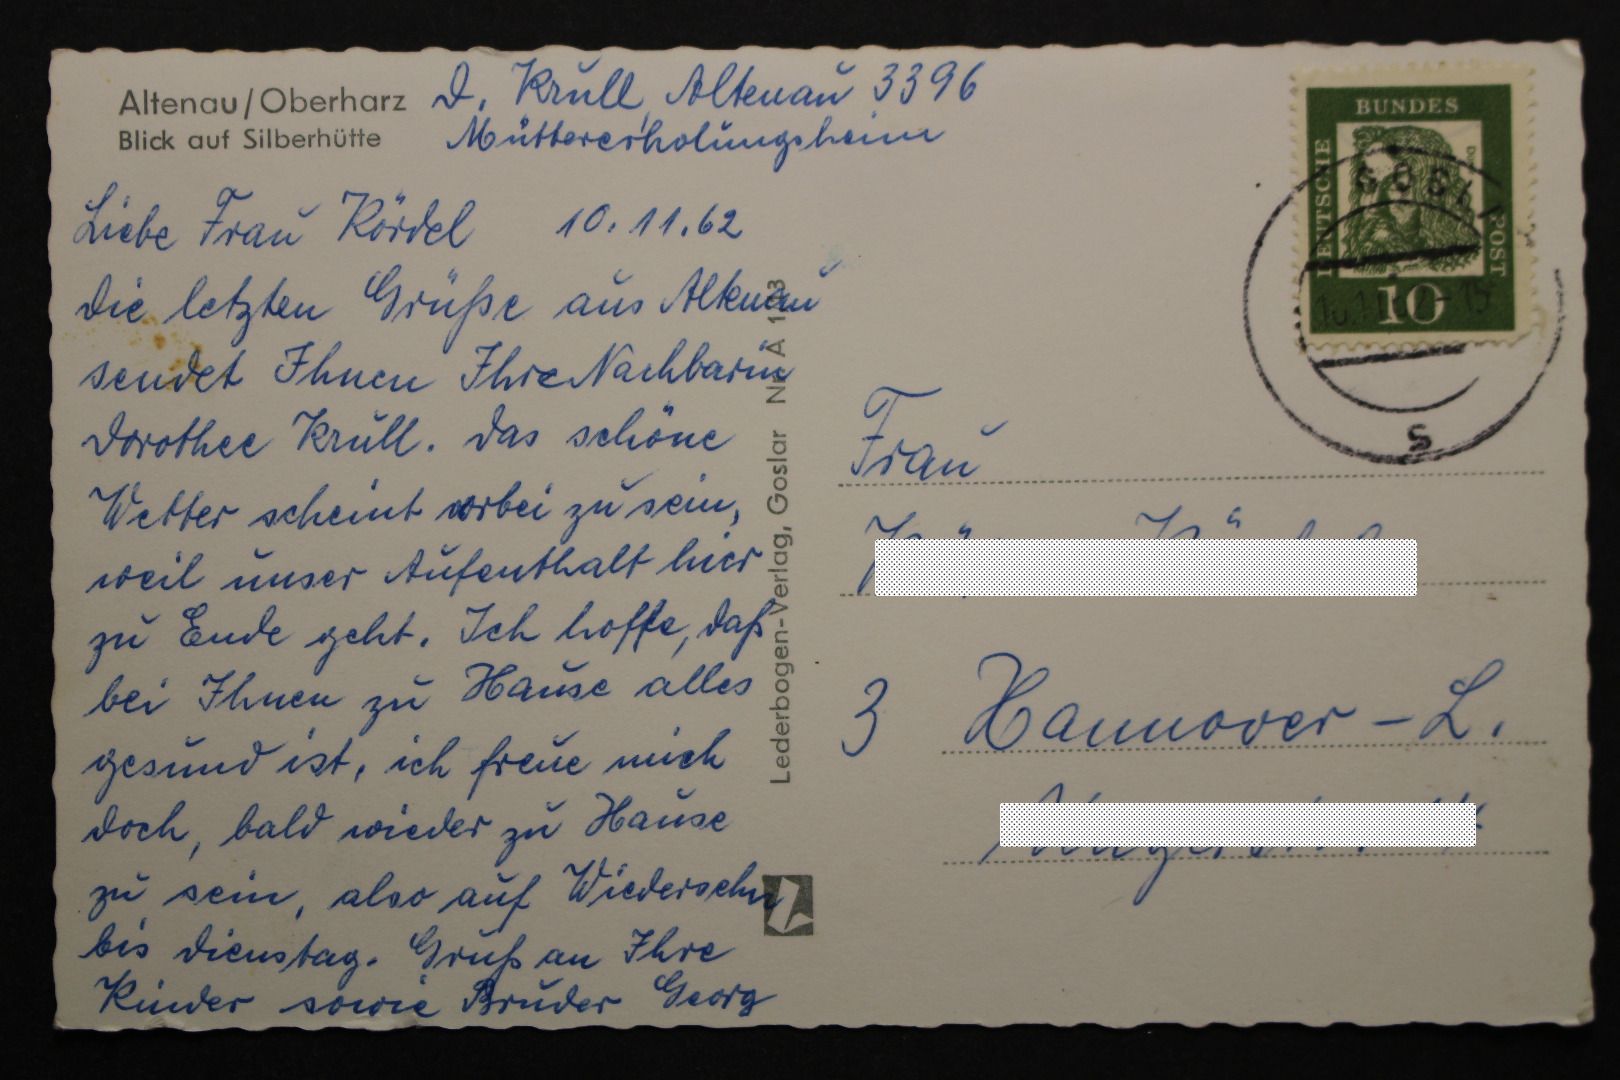 Altenau/Oberharz
Blick auf Silberhütte
D. Krull, Altenau 3396
Müttererholungsheim
Liebe Frau Kördel 10.11.62
Die letzten Grüße aus Altenau
sendet Ihnen Ihre Nachbarin
Dorothee Krull. Das schöne
Wetter scheint vorbei zu sein,
weil unser Aufenthalt hier
zu Ende geht. Ich hoffe, daß
bei Ihnen zu Hause alles
gesund ist, ich freue mich
doch, bald wieder zu Hause
zu sein, also auf Wiedersehn
bis Dienstag. Gruß an Ihre
Kinder sowie Bruder Georg
Lederbogen-Verlag, Goslar Nr. A
DEUTSCHE
BUNDES
POST
10
s
Frau
3 Hannover-L.